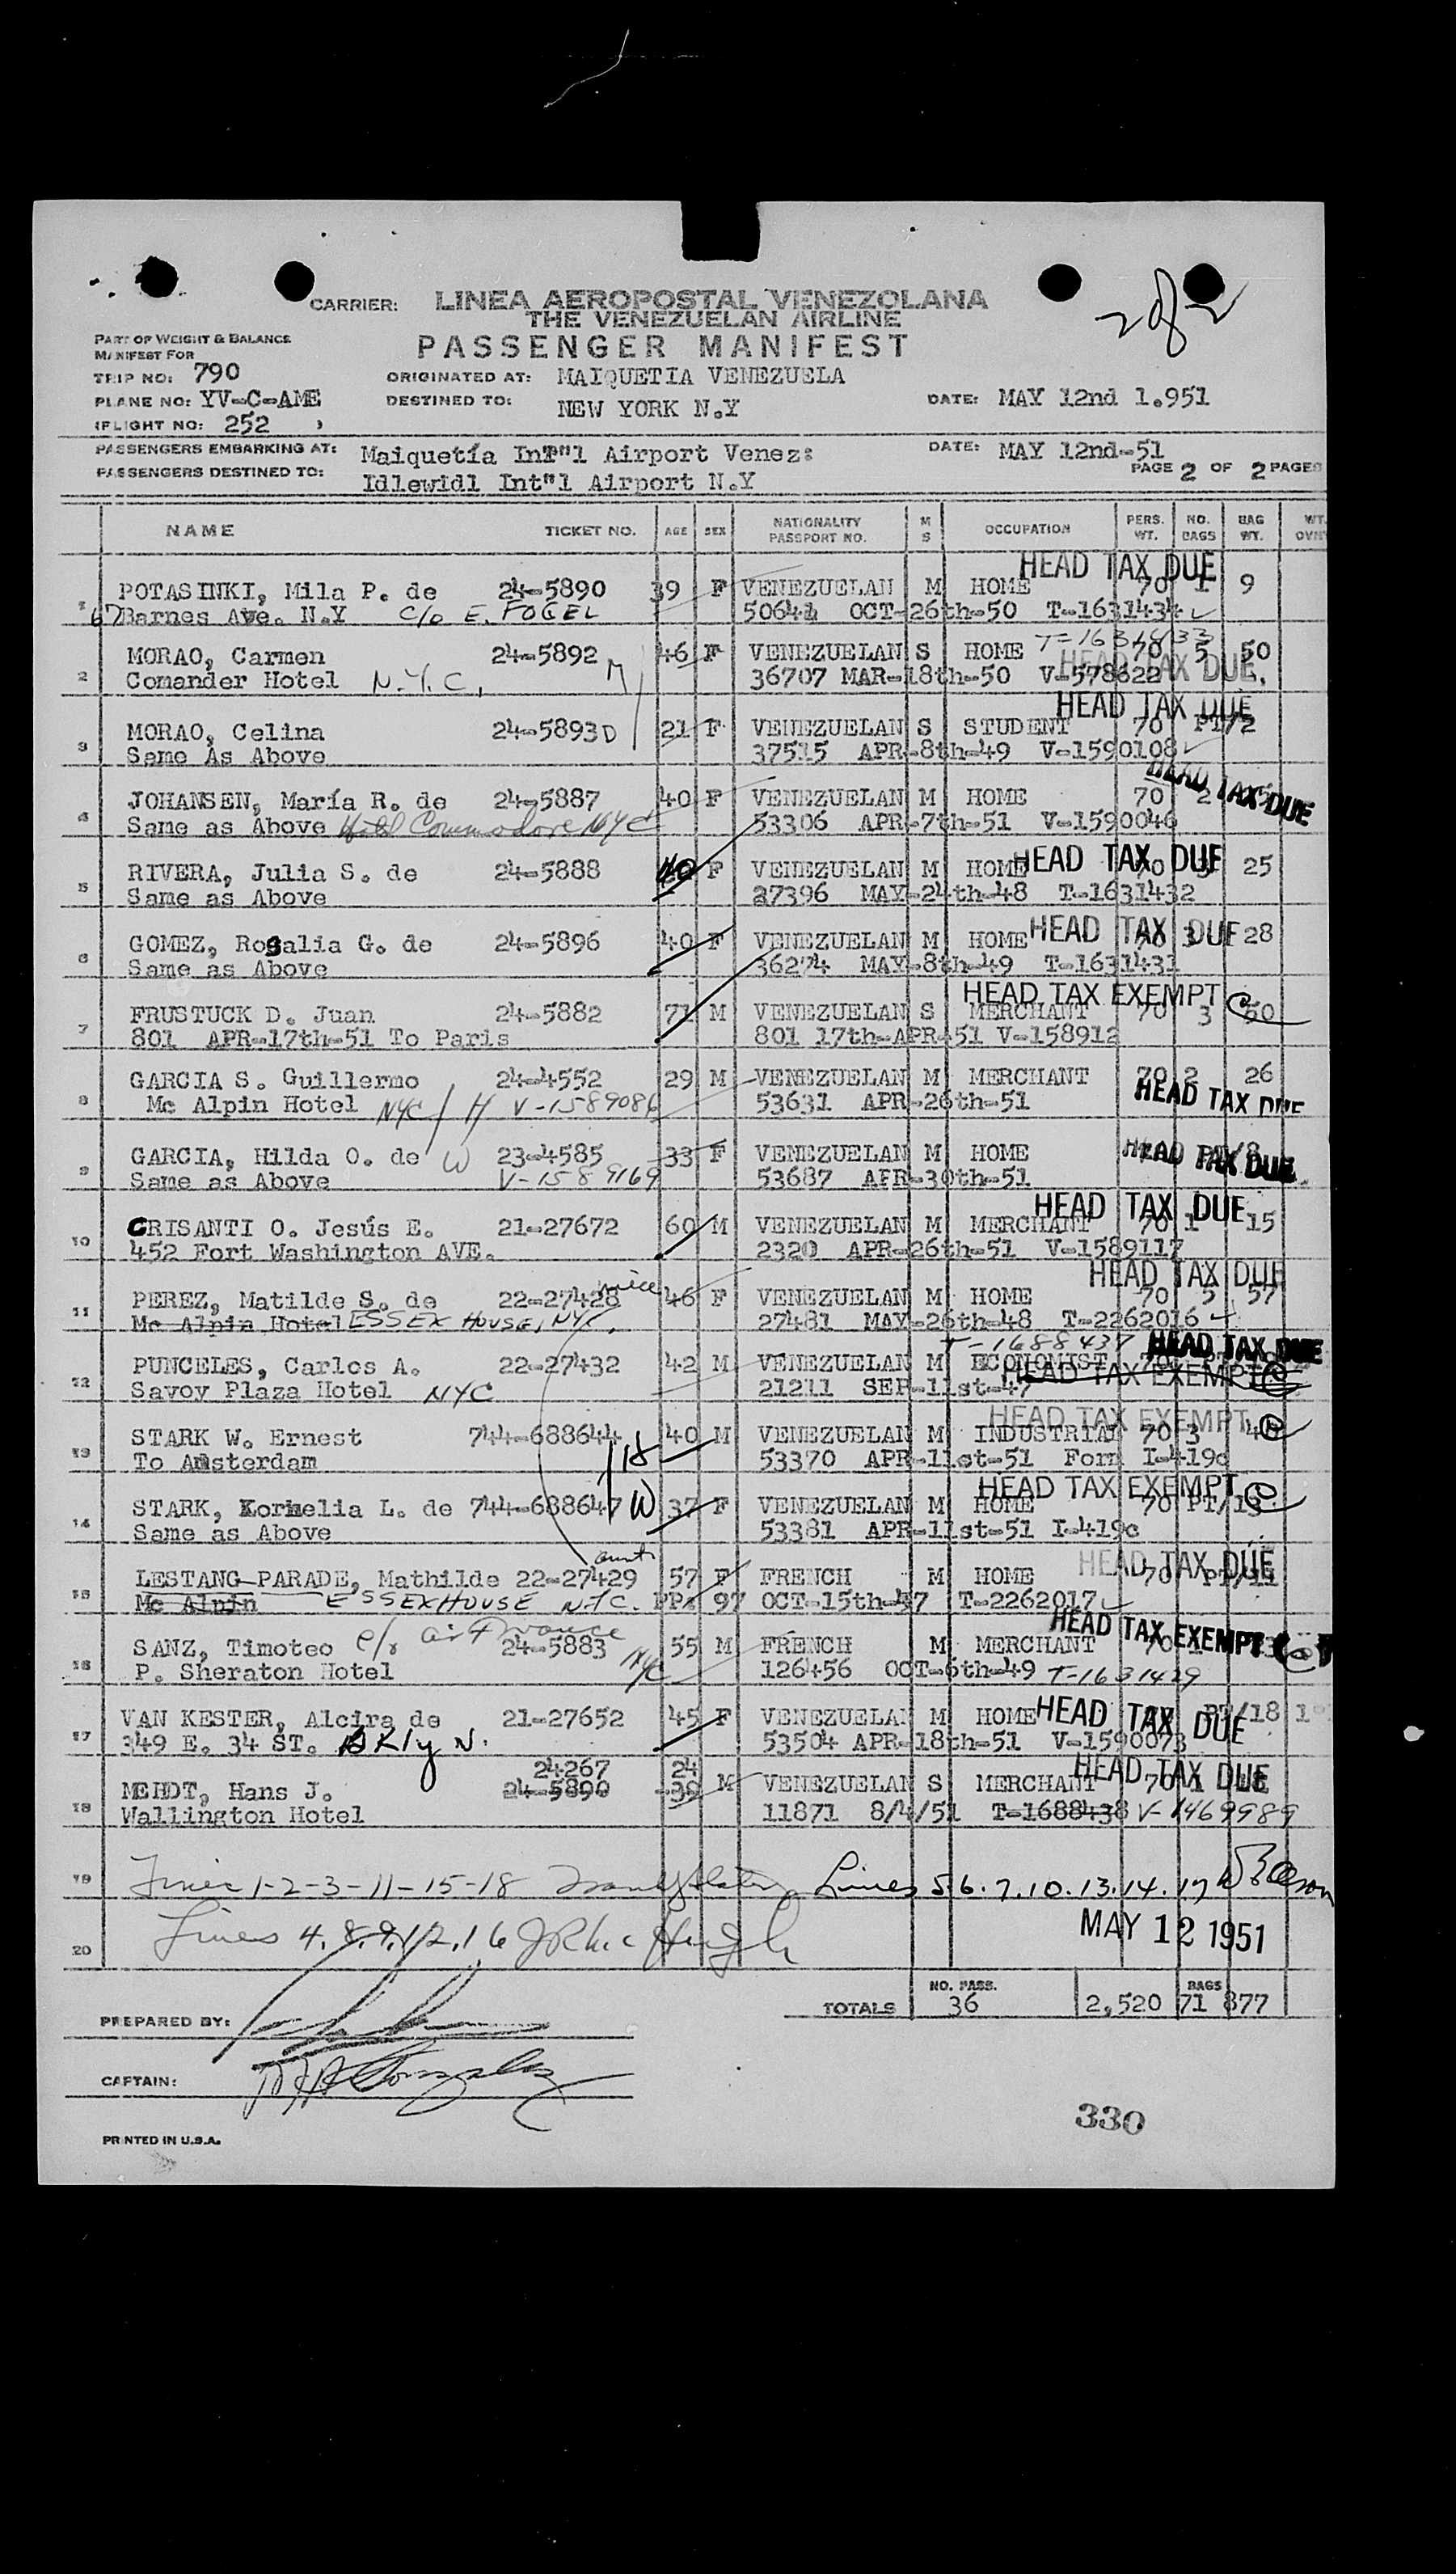 2 of 2
CARRIER: LINEA AEROPOSTAL VENEZOLANA
THE VENEZUELAN AIRLINE
PART OF WEIGHT & BALANCE
MANIFEST FOR
PASSENGER MANIFEST
TRIP NO: 790 ORIGINATED AT: MAIQUETIA VENEZUELA
PLANE NO: YV-C-AME DESTINED TO: NEW YORK N.Y DATE: MAY 12nd 1.951
(FLIGHT NO: 252 )
PASSENGERS EMBARKING AT: Maiquetía Int"l Airport Venez: DATE: MAY 12nd-51
PASSENGERS DESTINED TO: Idlewidl Int"l Airport N.Y PAGE 2 OF 2 PAGES
NAME TICKET NO. AGE SEX NATIONALITY PASSPORT NO. M S OCCUPATION PERS. WT. NO. BAGS BAG WT. WT. OVN
HEAD TAX DUE
1 POTASINKI, Mila P. de 24-5890 39 F VENEZUELAN M HOME 70 1 9
67 Barnes Ave. N.Y c/o E. FOGEL 50641 OCT-26th-50 T-1631434
T-1631433
2 MORAO, Carmen 24-5892 M 46 F VENEZUELAN S HOME 70 5 50
Comander Hotel N.Y.C. 36707 MAR-18th-50 V-578622 HEAD TAX DUE
HEAD TAX DUE
3 MORAO, Celina 24-5893 D 21 F VENEZUELAN S STUDENT 70 PT/2
Same As Above 37515 APR-8th-49 V-1590108
HEAD TAX DUE
4 JOHANSEN, María R. de 24-5887 40 F VENEZUELAN M HOME 70 2
Same as Above Hotel Commodore NYC 53306 APR-7th-51 V-1590046
HEAD TAX DUE
5 RIVERA, Julia S. de 24-5888 40 F VENEZUELAN M HOME 70 25
Same as Above 27396 MAY-24th-48 T-1631432
HEAD TAX DUE
6 GOMEZ, Rosalia G. de 24-5896 40 F VENEZUELAN M HOME 70 3 28
Same as Above 36274 MAY-8th-49 T-1631431
HEAD TAX EXEMPT
7 FRUSTUCK D. Juan 24-5882 71 M VENEZUELAN S MERCHANT 70 3 50
801 APR-17th-51 To Paris 801 17th-APR-51 V-158912
8 GARCIA S. Guillermo 24-4552 29 M VENEZUELAN M MERCHANT 70 2 26
Mc Alpin Hotel NYC H V-1589086 53631 APR-26th-51 HEAD TAX DUE
9 GARCIA, Hilda O. de W 23-4585 33 F VENEZUELAN M HOME HEAD TAX DUE
Same as Above V-1589169 53687 APR-30th-51
HEAD TAX DUE
10 CRISANTI O. Jesús E. 21-27672 60 M VENEZUELAN M MERCHANT 70 1 15
452 Fort Washington AVE. 2320 APR-26th-51 V-1589117
niece HEAD TAX DUE
11 PEREZ, Matilde S. de 22-27428 46 F VENEZUELAN M HOME 70 5 57
Mc Alpin Hotel ESSEX HOUSE, NYC. 27481 MAY-26th-48 T-2262016
T-1688437 HEAD TAX DUE
12 PUNCELES, Carlos A. 22-27432 42 M VENEZUELAN M ECONOMIST 70
Savoy Plaza Hotel NYC 21211 SEP-11st-47 HEAD TAX EXEMPT
HEAD TAX EXEMPT
13 STARK W. Ernest 744-688644 40 M VENEZUELAN M INDUSTRIAL 70 3
To Amsterdam H 53370 APR-11st-51 Form I-419c
HEAD TAX EXEMPT
14 STARK, Kornelia L. de 744-688647 W 37 F VENEZUELAN M HOME 70 PT/13
Same as Above 53381 APR-11st-51 I-419c
aunt HEAD TAX DUE
15 LESTANG-PARADE, Mathilde 22-27429 57 F FRENCH M HOME 70 PT/11
Mc Alpin ESSEX HOUSE N.Y.C. PP: 97 OCT-15th-47 T-2262017
c/o Air France HEAD TAX EXEMPT
16 SANZ, Timoteo 24-5883 55 M FRENCH M MERCHANT 70
P. Sheraton Hotel NYC 126456 OCT-6th-49 T-1631429
17 VAN KESTER, Alcira de 21-27652 45 F VENEZUELAN M HOME HEAD TAX DUE PT/18
349 E. 34 ST. BKly N. 53504 APR-18th-51 V-1590073
24267 24 HEAD TAX DUE
18 MENDT, Hans J. 24-5890 39 M VENEZUELAN S MERCHANT 70 1 18
Wallington Hotel 11871 8/4/51 T-1688438 V-1469989
19 Lines 1-2-3-11-15-18 Lines 5.6.7.10.13.14.17
Lines 4.8.9.12.16
20 MAY 12 1951
TOTALS NO. PASS. 36 2,520 BAGS 71 877
PREPARED BY:
CAPTAIN:
330
PRINTED IN U.S.A.